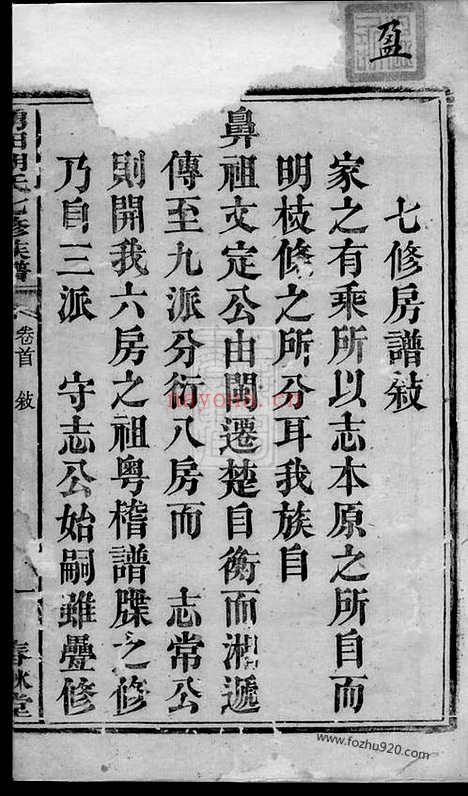 盈
七修房譜敍
家之有乘所以志本原之所自而
明枝條之所分耳我族自
鼻祖文定公由閩遷楚自衡而湘遞
傳至九派分衍八房而 志常公
則開我六房之祖粵稽譜牒之修
乃自三派 守志公始嗣雖疊修
氏七修族譜
卷首 敍
一
春秋堂
nayona.cn
www.fozhu920.com